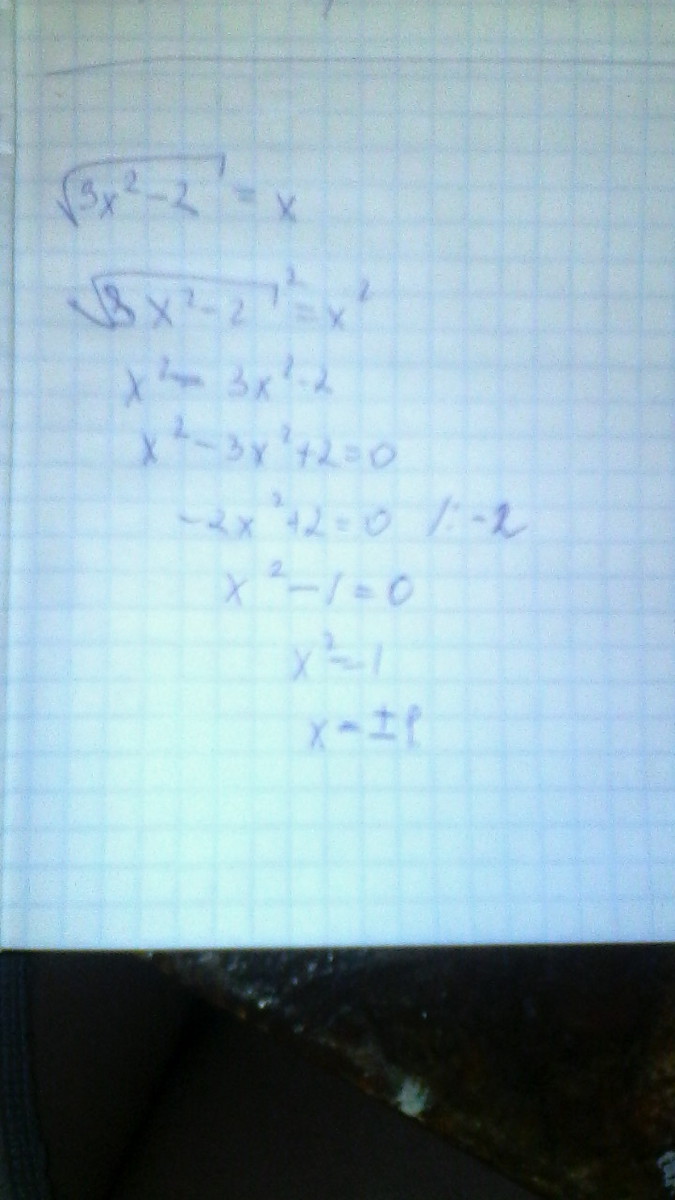 √3x²-2 = x
√3x²-2² = x²
x² = 3x²-2
x²-3x²+2=0
-2x²+2=0 /:-2
x²-1=0
x²=1
x=±1